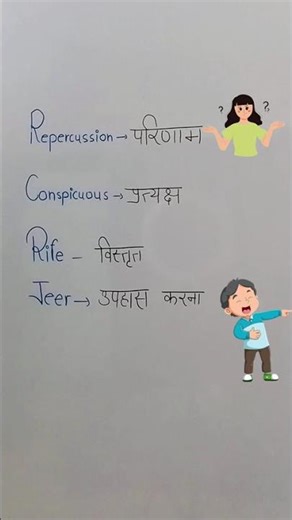 Repercussion → परिणाम
Conspicuous → प्रत्यक्ष
Rife - विस्तृत
Jeer → उपहास करना
? ?